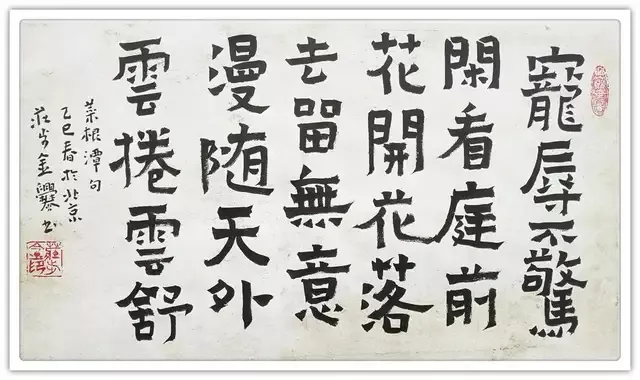 寵辱不驚
閑看庭前
花開花落
去留無意
漫随天外
雲捲雲舒
菜根潭句
乙巳春於北京
莊步金爨书